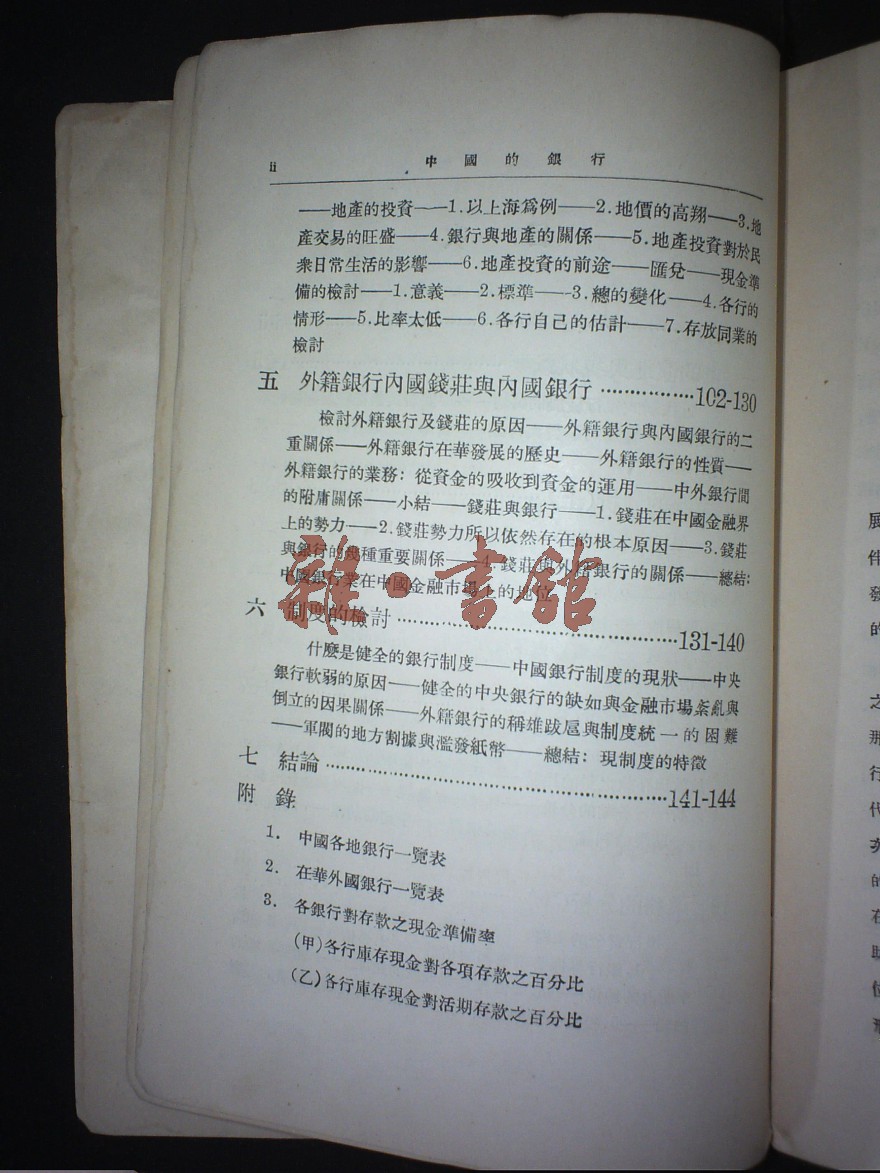 ii 中國的銀行
——地產的投資——1.以上海爲例——2.地價的高翔——3.地
產交易的旺盛——4.銀行與地產的關係——5.地產投資對於民
衆日常生活的影響——6.地產投資的前途——匯兌——現金準
備的檢討——1.意義——2.標準——3.總的變化——4.各行的
情形——5.比率太低——6.各行自己的估計——7.存放同業的
檢討
五 外籍銀行內國錢莊與內國銀行……………102-130
檢討外籍銀行及錢莊的原因——外籍銀行與內國銀行的二
重關係——外籍銀行在華發展的歷史——外籍銀行的性質——
外籍銀行的業務：從資金的吸收到資金的運用——中外銀行間
的附庸關係——小結——錢莊與銀行——1.錢莊在中國金融界
上的勢力——2.錢莊勢力所以依然存在的根本原因——3.錢莊
與銀行的幾種重要關係——4.錢莊與外籍銀行的關係——總結：
中國銀行業在中國金融市場上的地位
雜·書舘
六 制度的檢討……………………………………131-140
什麼是健全的銀行制度——中國銀行制度的現狀——中央
銀行軟弱的原因——健全的中央銀行的缺如與金融市場紊亂與
倒立的因果關係——外籍銀行的稱雄跋扈與制度統一的困難
——軍閥的地方割據與濫發紙幣——總結：現制度的特徵
七 結論……………………………………………141-144
附錄
1. 中國各地銀行一覽表
2. 在華外國銀行一覽表
3. 各銀行對存款之現金準備率
(甲)各行庫存現金對各項存款之百分比
(乙)各行庫存現金對活期存款之百分比
展
件
發
的
之
那
行
代
的
在
位